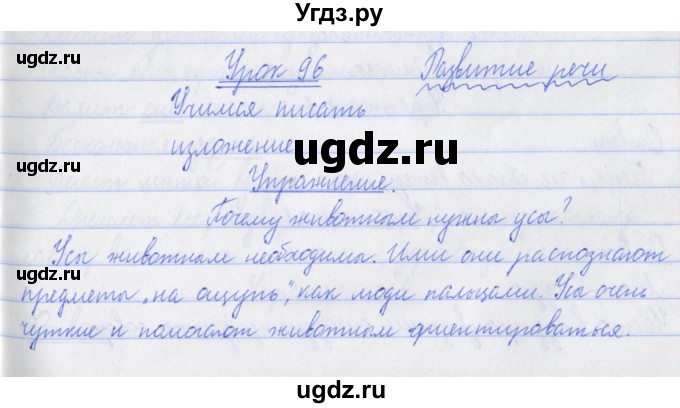 Угдз.ру
ugdz.ru ugdz.ru ugdz.ru
Урок 96 Развитие речи
Учимся писать
ugdz.ru изложение ugdz.ru ugdz.ru
Упражнение.
Почему животным нужны усы?
Усы животным необходимы. Ими они распознают
предметы „на ощупь“, как люди пальцами. Усы очень
чуткие и помогают животным ориентироваться.
ugdz.ru ugdz.ru
ugdz.ru